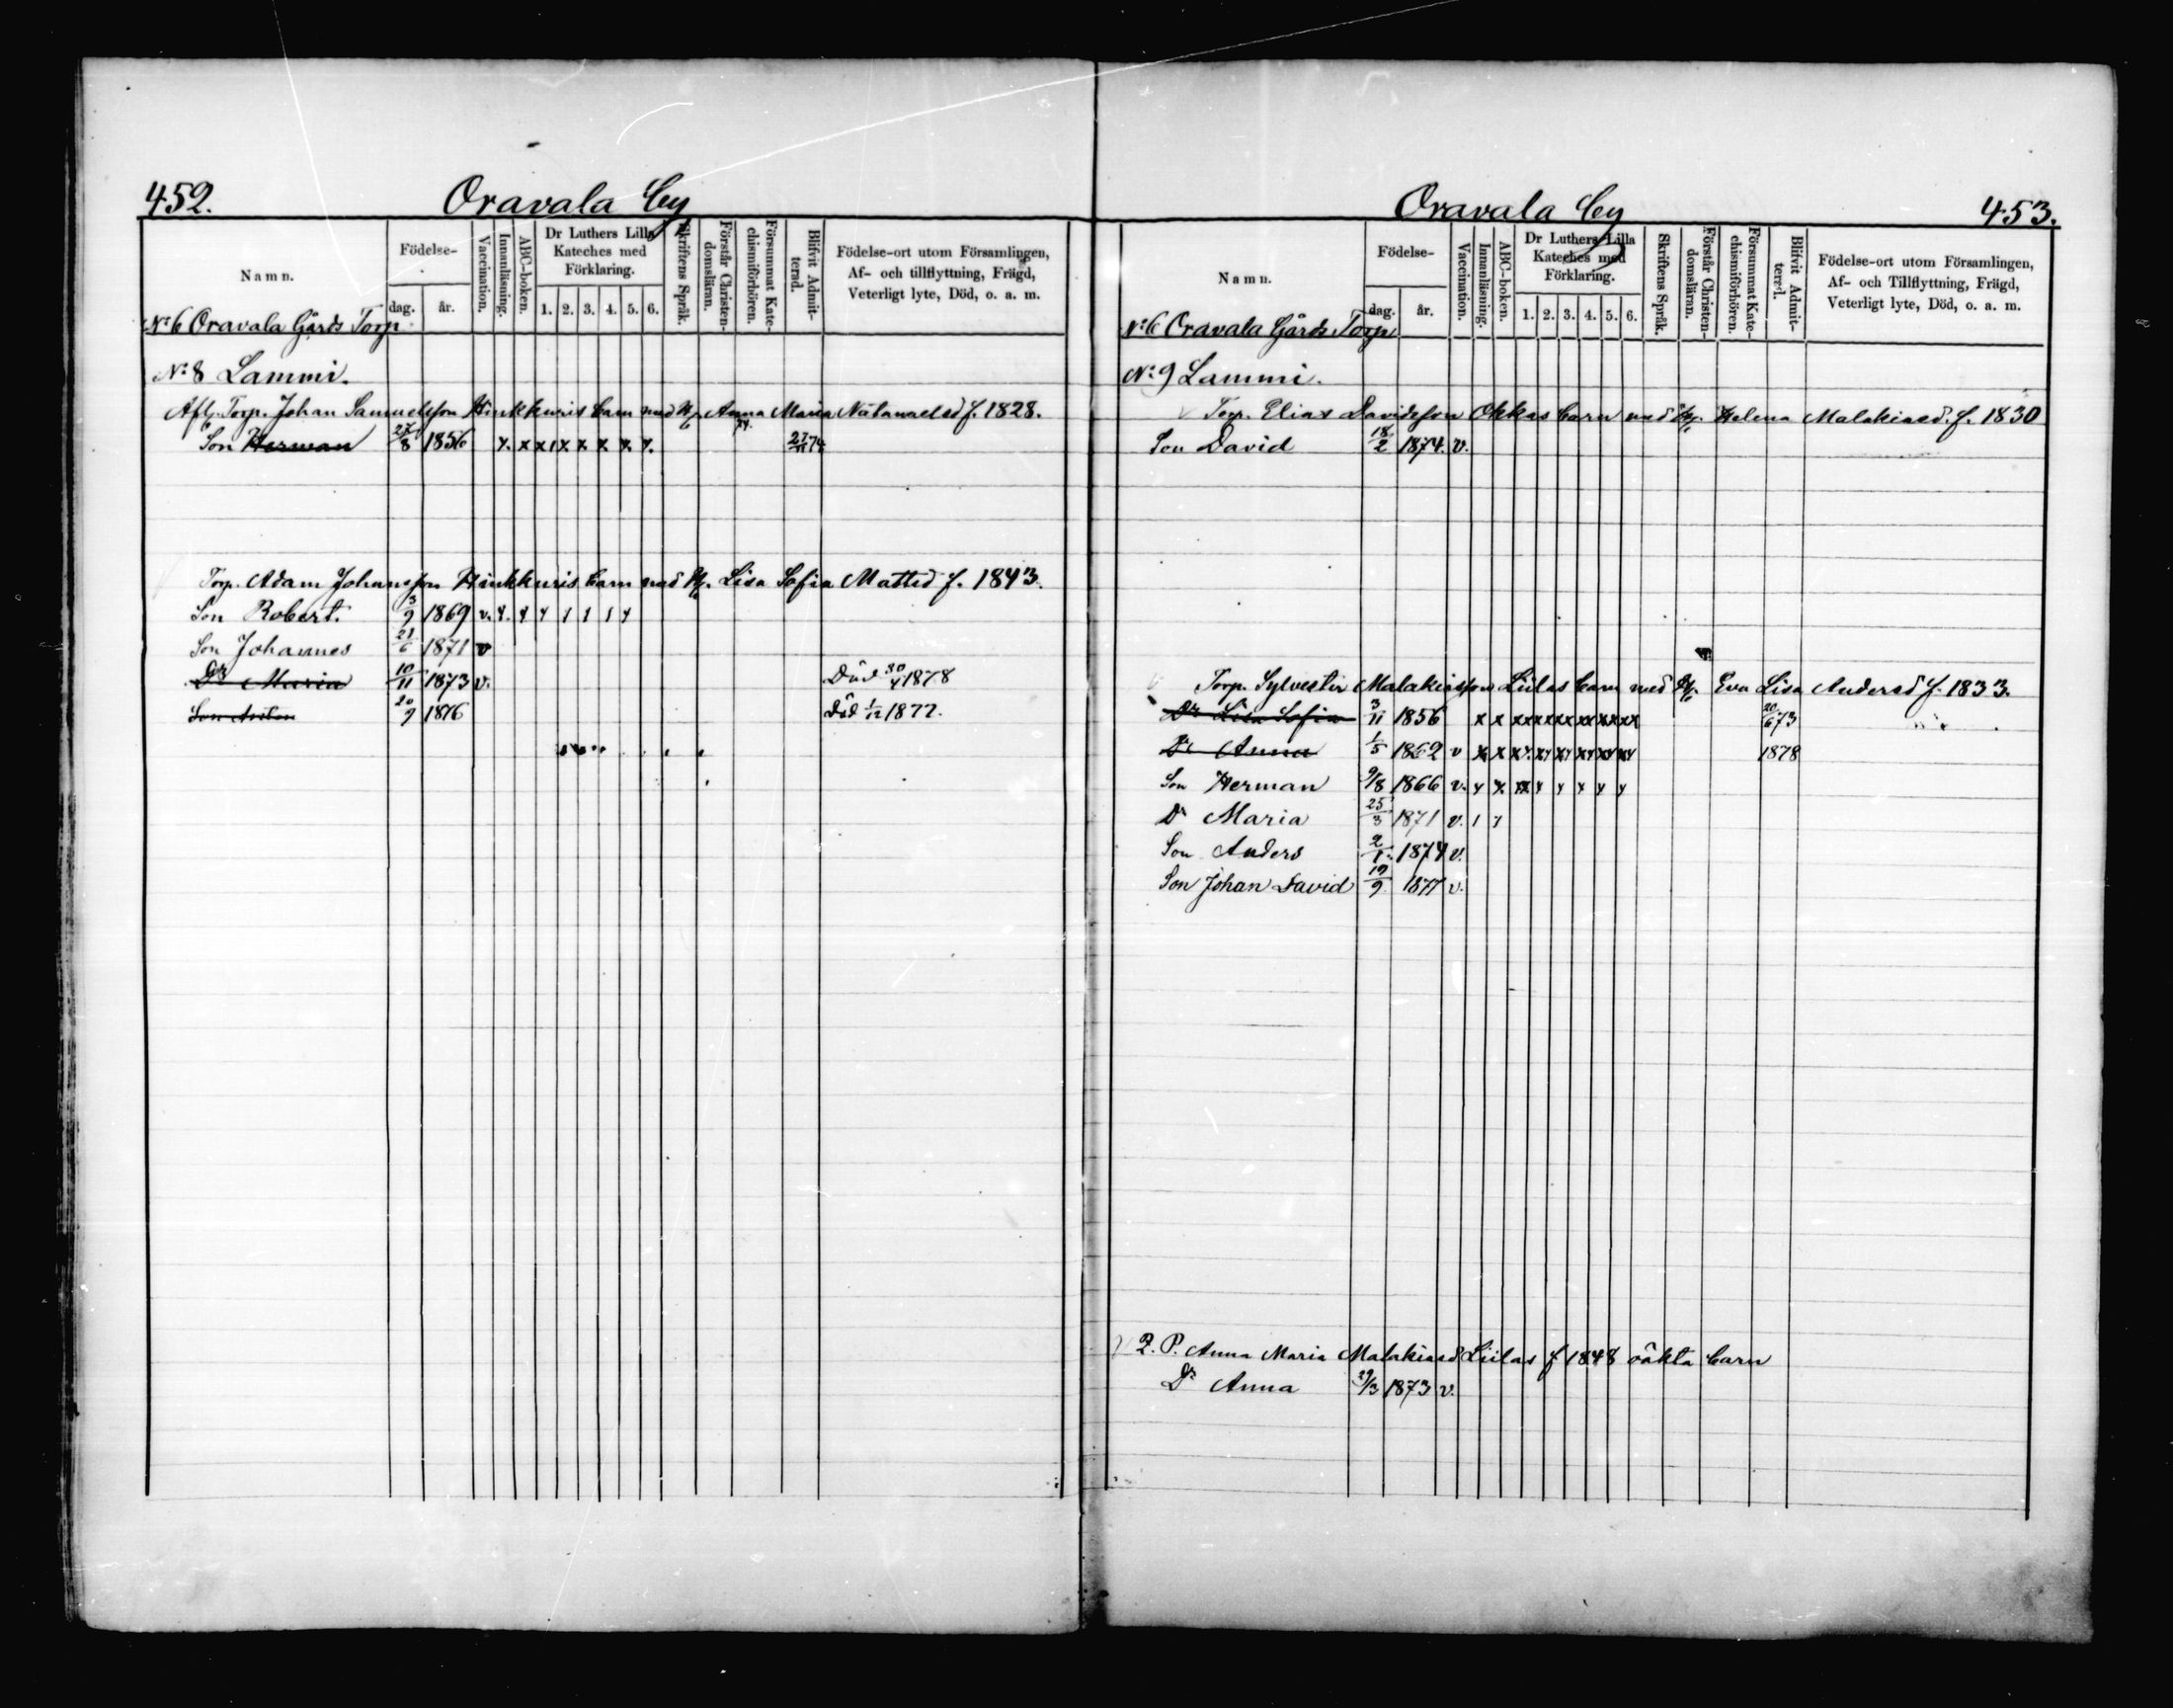 452. Oravala by
Namn. Födelse- dag. år. Vaccination. Innanläsning. ABC-boken. Dr Luthers Lilla Kateches med Förklaring. 1. 2. 3. 4. 5. 6. Skriftens Språk. Förstår Christen-domsläran. Försummat Kate-chismiförhören. Blifvit Admit-terad. Födelse-ort utom Församlingen, Af- och tillflyttning, Frägd, Veterligt lyte, Död, o. a. m.
No 6 Oravala Gårds Torp
No 8 Lammi.
Afl. Torp. Johan Samuelsson Hinkkuris barn med H. Anna Maria Natanaelsd f. 1828.
Son Herman 27/8 1856 x. x x 1 x x x x x x. 27/11 74
Torp. Adam Johansson Hinkkuris barn med H. Lisa Sofia Mattsd f. 1843.
Son Robert. 3/9 1869 v. x. x x 1 1 1 x
Son Johannes 21/6 1871 v
Dr Maria 10/11 1873 v. Död 30/4 1878
Son Anton 20/9 1876 Död 1/12 1877.
Oravala by 453.
Namn. Födelse- dag. år. Vaccination. Innanläsning. ABC-boken. Dr Luthers Lilla Kateches med Förklaring. 1. 2. 3. 4. 5. 6. Skriftens Språk. Förstår Christen-domsläran. Försummat Kate-chismiförhören. Blifvit Admit-terad. Födelse-ort utom Församlingen, Af- och Tillflyttning, Frägd, Veterligt lyte, Död, o. a. m.
No 6 Oravala Gårds Torp
No 9 Lammi.
Torp. Elias Davidsson Okkas barn med H. Helena Malakiasd. f. 1830
Son David 18/2 1874. v.
Torp. Sylvester Malakiasson Liilas barn med H. Eva Lisa Andersd f. 1833.
Dr Lisa Sofia 3/11 1856 x x xx xx xx xx xx xx 20/6 73
Dr Anna 1/5 1862 v x x xx xx xx xx xx xx 1878
Son Herman 9/8 1866 v. x x xx x x x x x
Dr Maria 25/3 1871 v. 1 1
Son Anders 2/1. 1874 v.
Son Johan David 19/9 1877 v.
2. P. Anna Maria Malakiasd Liilas f 1848 oäkta barn
Dr Anna 29/3 1873 v.